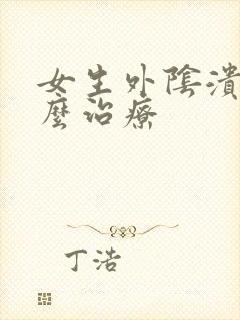 女生外陰潰
麼治療
丁浩